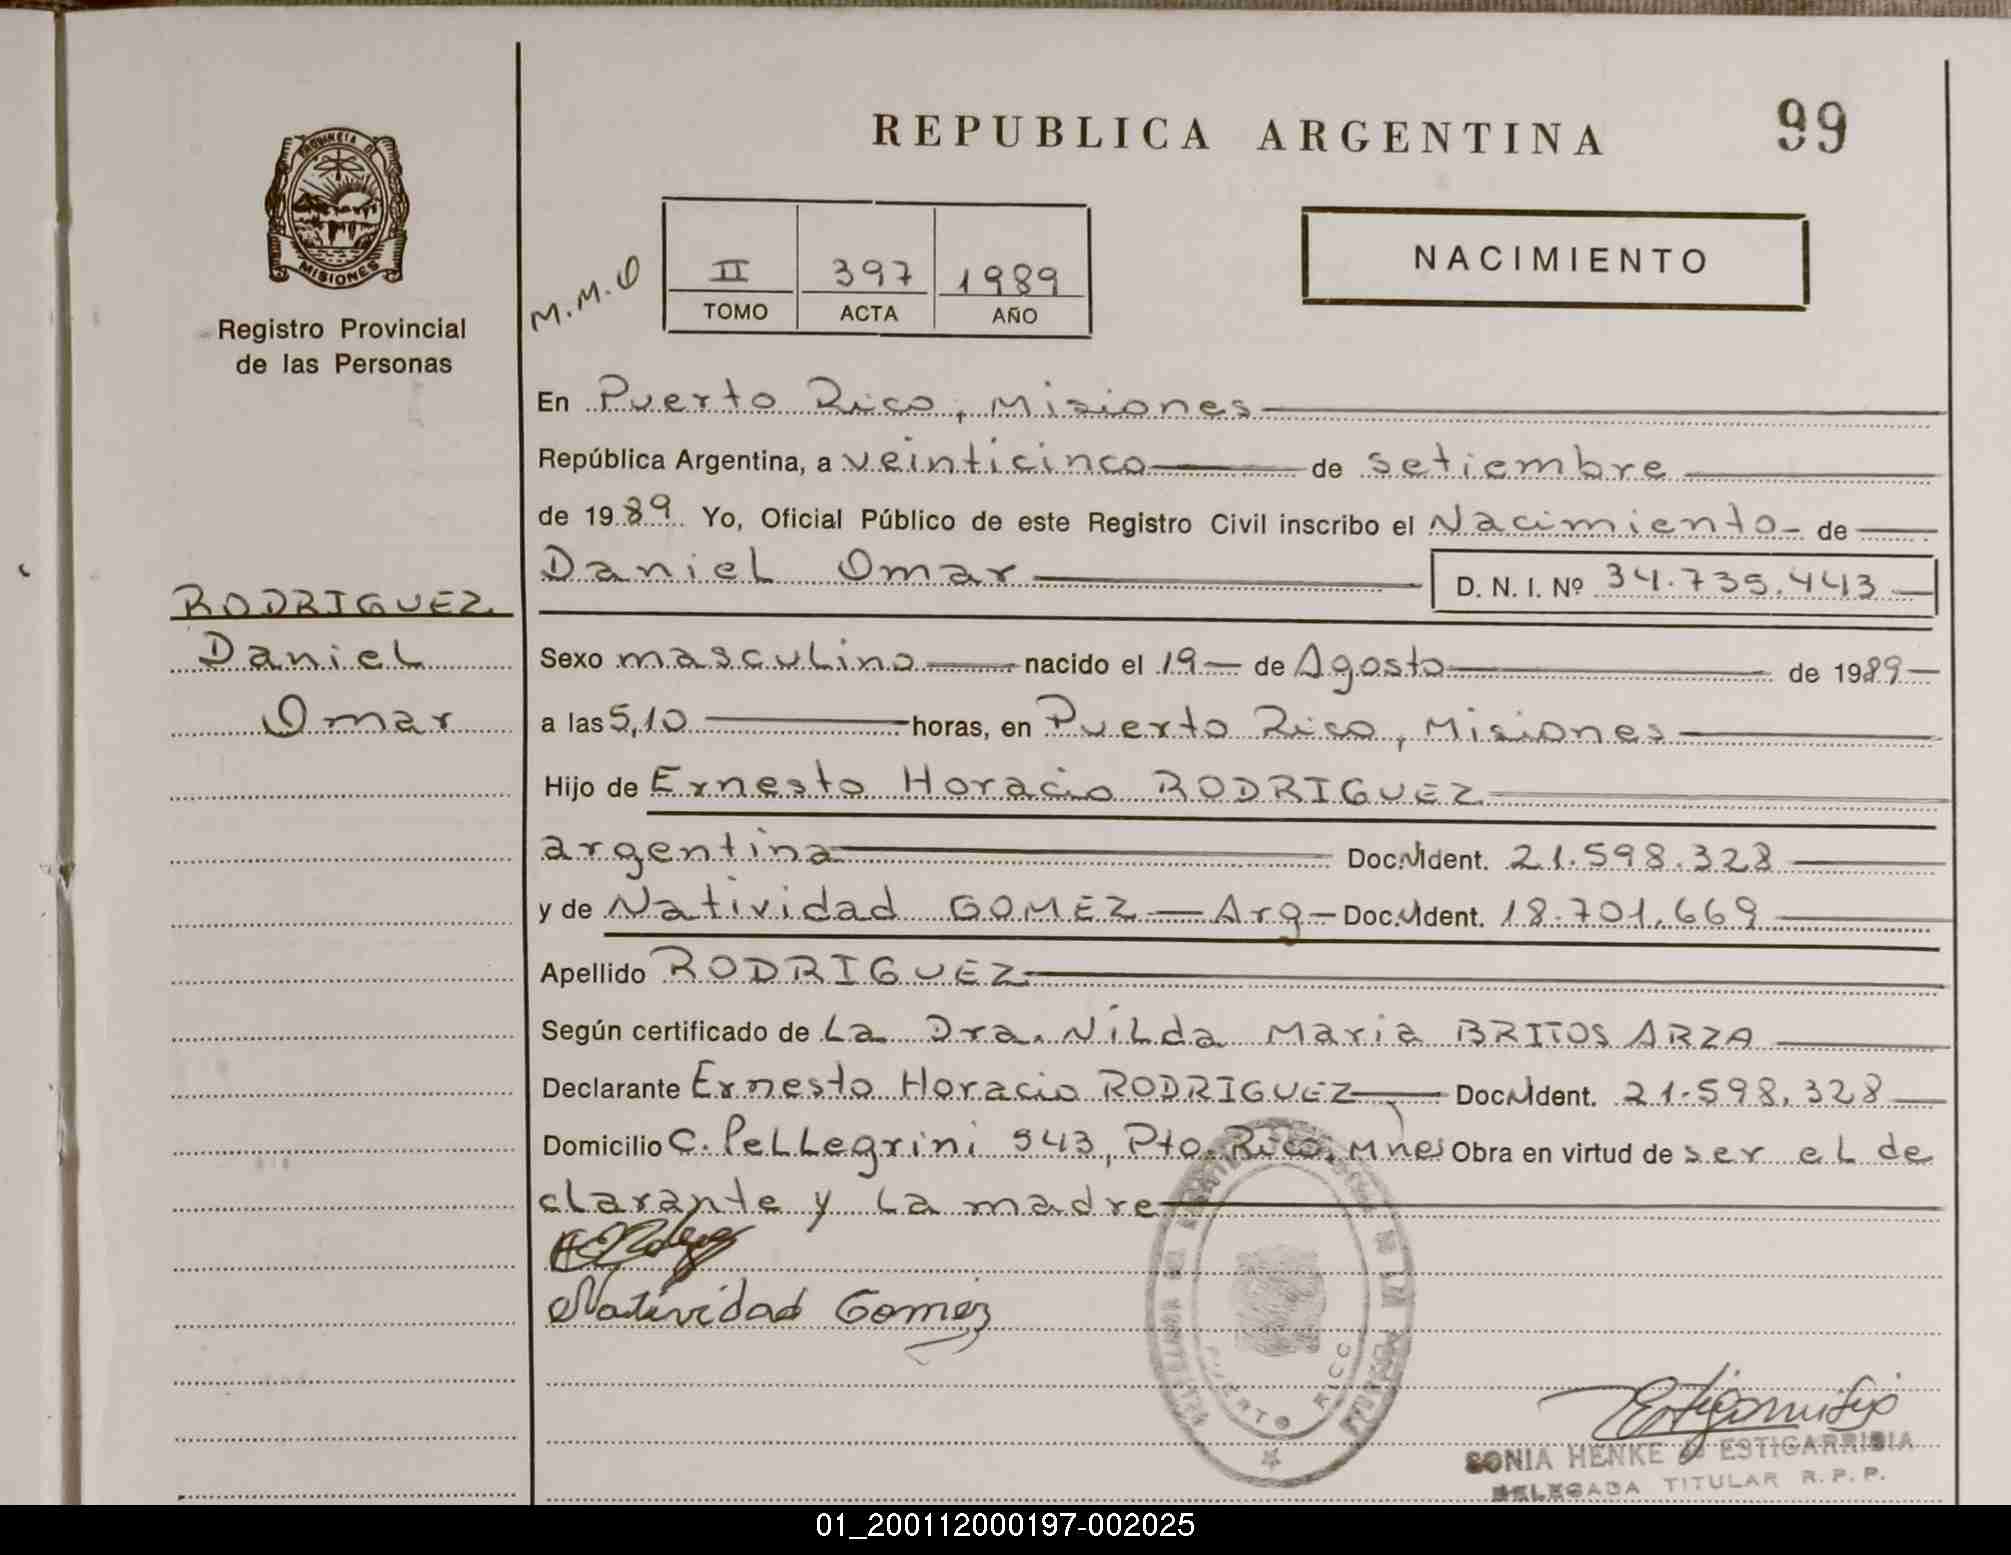 REPUBLICA ARGENTINA
99
PROVINCIA D
MISIONES
Registro Provincial
de las Personas
M.M.O
II 397 1989
TOMO ACTA AÑO
NACIMIENTO
En Puerto Rico, Misiones
República Argentina, a veinticinco de setiembre
de 1989 Yo, Oficial Público de este Registro Civil inscribo el Nacimiento de
Daniel Omar D. N. I. Nº 34.735.443
RODRIGUEZ
Daniel
Omar
Sexo masculino nacido el 19 de Agosto de 1989
a las 5,10 horas, en Puerto Rico, Misiones
Hijo de Ernesto Horacio RODRIGUEZ
argentina Doc. Ident. 21.598.328
y de Natividad GOMEZ - Arg - Doc. Ident. 18.701.669
Apellido RODRIGUEZ
Según certificado de La Dra. Nilda Maria BRITOS ARZA
Declarante Ernesto Horacio RODRIGUEZ Doc. Ident. 21.598.328
Domicilio C. Pellegrini 543, Pto. Rico, Mnes Obra en virtud de ser el de
clarante y la madre
Natividad Gomez
PUERTO RICO
Estigarribia
SONIA HENKE de ESTIGARRIBIA
DELEGADA TITULAR R. P. P.
01_200112000197-002025